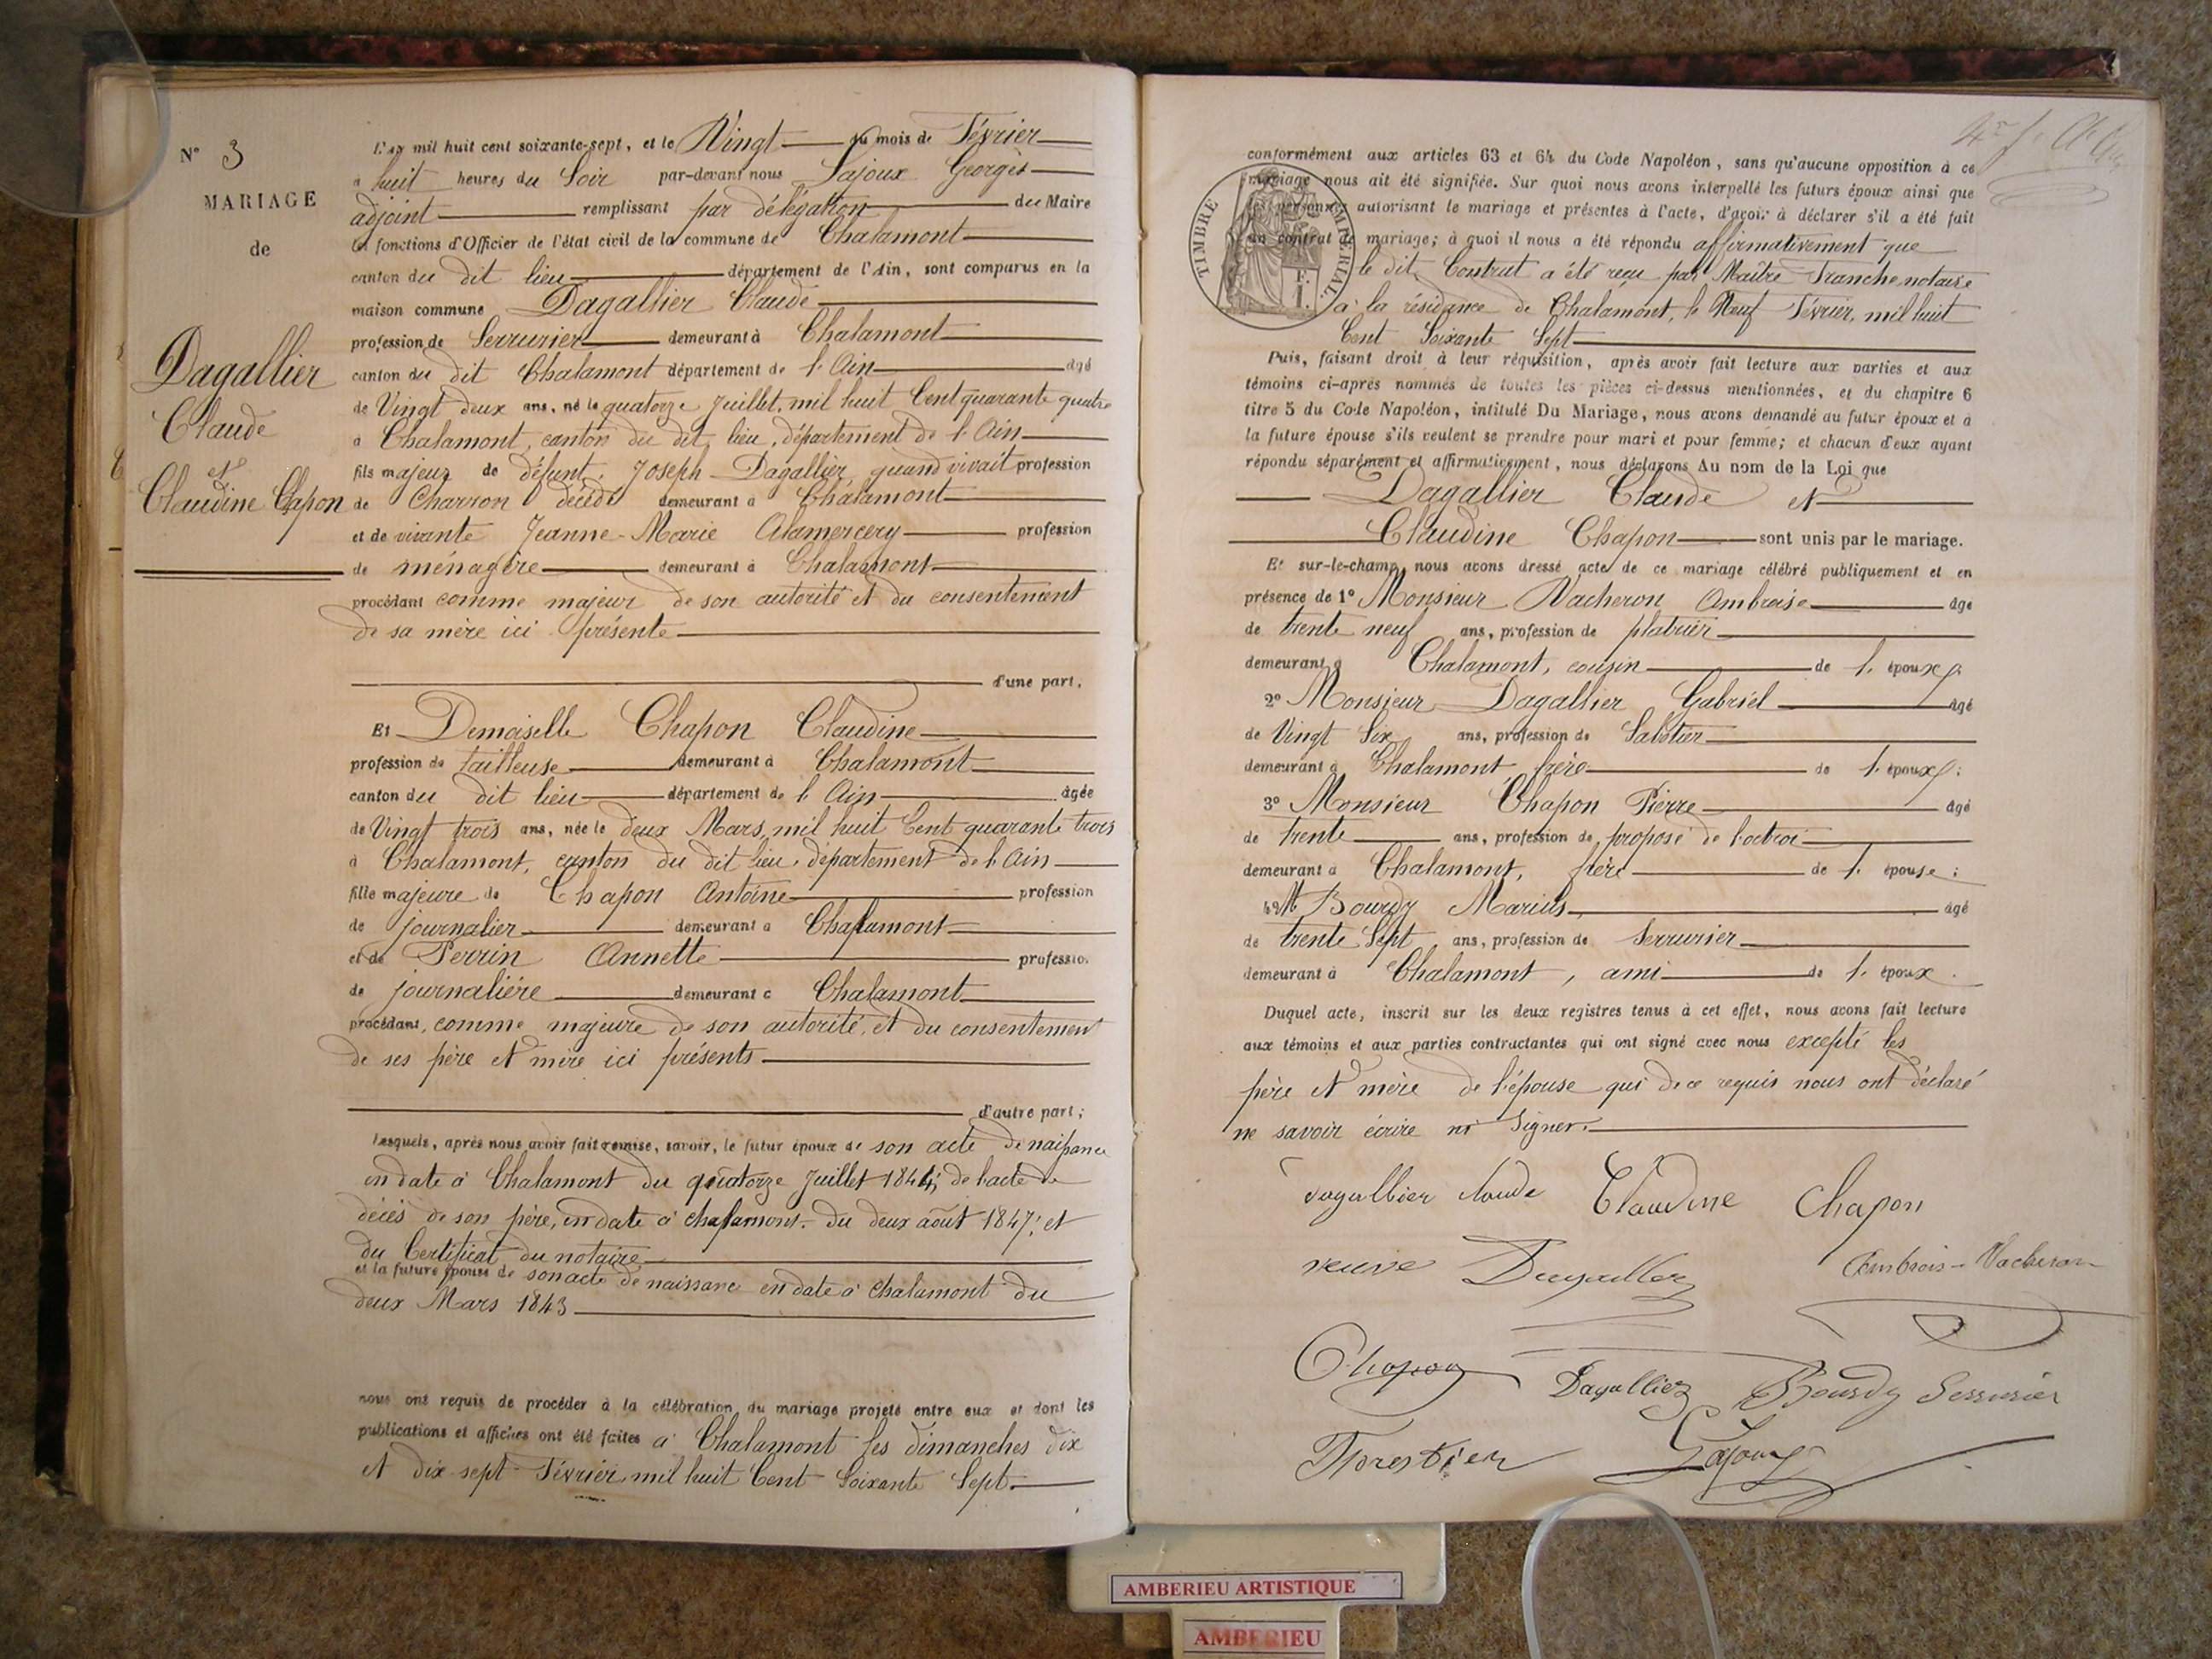 N° 3
MARIAGE
de
Dagallier
Claude
et
Claudine Chapon
L'an mil huit cent soixante-sept, et le Vingt du mois de Février
à huit heures du Soir par-devant nous Lajoux Georges
adjoint remplissant par délégation du Maire
les fonctions d'Officier de l'état civil de la commune de Chalamont
canton du dit lieu département de l'Ain, sont comparus en la
maison commune Dagallier Claude
profession de Serrurier demeurant à Chalamont
canton du dit Chalamont département de l'Ain âgé
de Vingt deux ans, né le quatorze Juillet, mil huit Cent quarante quatre
à Chalamont, canton du dit lieu, département de l'Ain
fils majeur de défunt Joseph Dagallier, quand vivait profession
de Charron décédé demeurant à Chalamont
et de vivante Jeanne-Marie Alamercery profession
de ménagère demeurant à Chalamont
procédant comme majeur de son autorité et du consentement
de sa mère ici présente
d'une part,
Et Demoiselle Chapon Claudine
profession de tailleuse demeurant à Chalamont
canton du dit lieu département de l'Ain âgée
de Vingt trois ans, née le deux Mars, mil huit Cent quarante trois
à Chalamont, canton du dit lieu, département de l'Ain
fille majeure de Chapon Antoine profession
de journalier demeurant à Chalamont
et de Perrin Annette profession
de journalière demeurant à Chalamont
procédant, comme majeure de son autorité, et du consentement
de ses père et mère ici présents
d'autre part;
Lesquels, après nous avoir fait remise, savoir, le futur époux de son acte de naissance
en date à Chalamont du quatorze Juillet 1844; de l'acte de
décès de son père, en date à chalamont du deux août 1847; et
du Certificat du notaire
et la future épouse de son acte de naissance en date à Chalamont du
deux Mars 1843
nous ont requis de procéder à la célébration du mariage projeté entre eux et dont les
publications et affiches ont été faites à Chalamont les dimanches dix
et dix-sept Février mil huit Cent Soixante Sept.
conformément aux articles 63 et 64 du Code Napoléon, sans qu'aucune opposition à ce
mariage nous ait été signifiée. Sur quoi nous avons interpellé les futurs époux ainsi que
les personnes autorisant le mariage et présentes à l'acte, d'avoir à déclarer s'il a été fait
un contrat de mariage; à quoi il nous a été répondu affirmativement que
TIMBRE IMPÉRIAL
F.
1.
le dit Contrat a été reçu par Maître Franche notaire
à la résidance de Chalamont, le Neuf Février, mil huit
Cent Soixante Sept
Puis, faisant droit à leur réquisition, après avoir fait lecture aux parties et aux
témoins ci-après nommés de toutes les pièces ci-dessus mentionnées, et du chapitre 6
titre 5 du Code Napoléon, intitulé Du Mariage, nous avons demandé au futur époux et à
la future épouse s'ils veulent se prendre pour mari et pour femme; et chacun d'eux ayant
répondu séparément et affirmativement, nous déclarons Au nom de la Loi que
Dagallier Claude et
Claudine Chapon sont unis par le mariage.
Et sur-le-champ, nous avons dressé acte de ce mariage célébré publiquement et en
présence de 1° Monsieur Vacheron Ambroise âgé
de trente neuf ans, profession de platrier
demeurant à Chalamont, cousin de l. époux;
2° Monsieur Dagallier Gabriel âgé
de Vingt Six ans, profession de Sabotier
demeurant à Chalamont, frère de l. époux;
3° Monsieur Chapon Pierre âgé
de trente ans, profession de préposé de l'octroi
demeurant à Chalamont, frère de l. épouse;
4° M. Bourdy Marius âgé
de trente Sept ans, profession de Serrurier
demeurant à Chalamont, ami de l. époux.
Duquel acte, inscrit sur les deux registres tenus à cet effet, nous avons fait lecture
aux témoins et aux parties contractantes qui ont signé avec nous excepté les
père et mère de l'épouse qui de ce requis nous ont déclaré
ne savoir écrire ni Signer.
dagallier claude Claudine Chapon
veuve Dagallier Ambrois Vacheron
Chapon Dagallier Bourdy Serrurier
Forestier Lajoux
AMBERIEU ARTISTIQUE
AMBERIEU